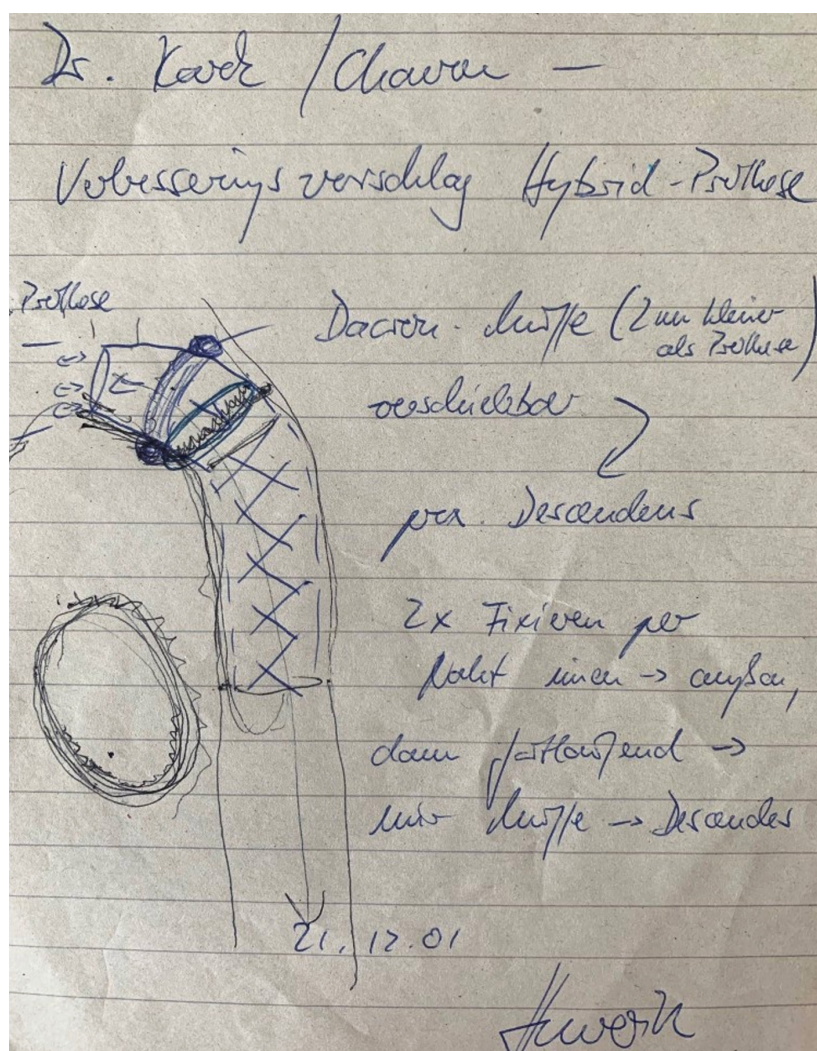 Dr. Karck / Chavan –
Verbesserungsvorschlag Hybrid-Prothese
Prothese
Dacron-Muffe (2 mm kleiner
als Prothese)
verschiebbar
prox. Descendens
2x Fixieren per
Naht innen → außen,
dann fortlaufend →
nur Muffe → Descendes
21.12.01